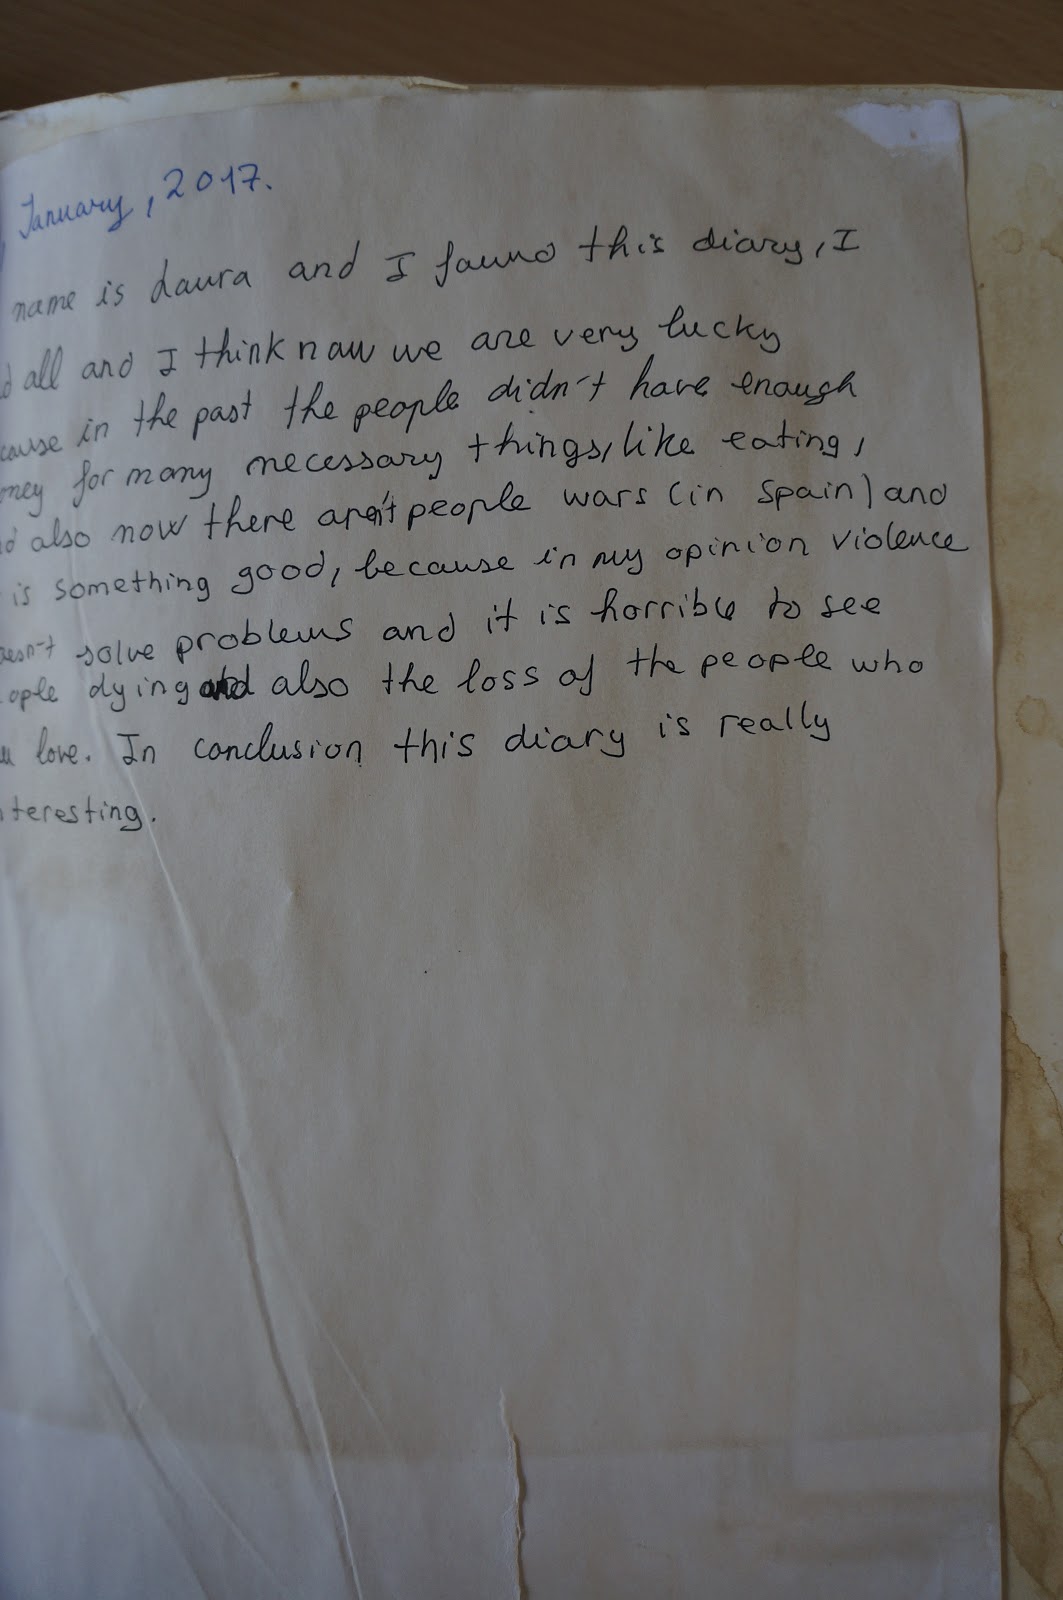 January, 2017.
name is Laura and I found this diary, I
d all and I think now we are very lucky
cause in the past the people didn't have enough
oney for many necessary things, like eating,
d also now there aren't people wars (in Spain) and
is something good, because in my opinion violence
oesn't solve problems and it is horrible to see
ople dying and also the loss of the people who
u love. In conclusion this diary is really
nteresting.